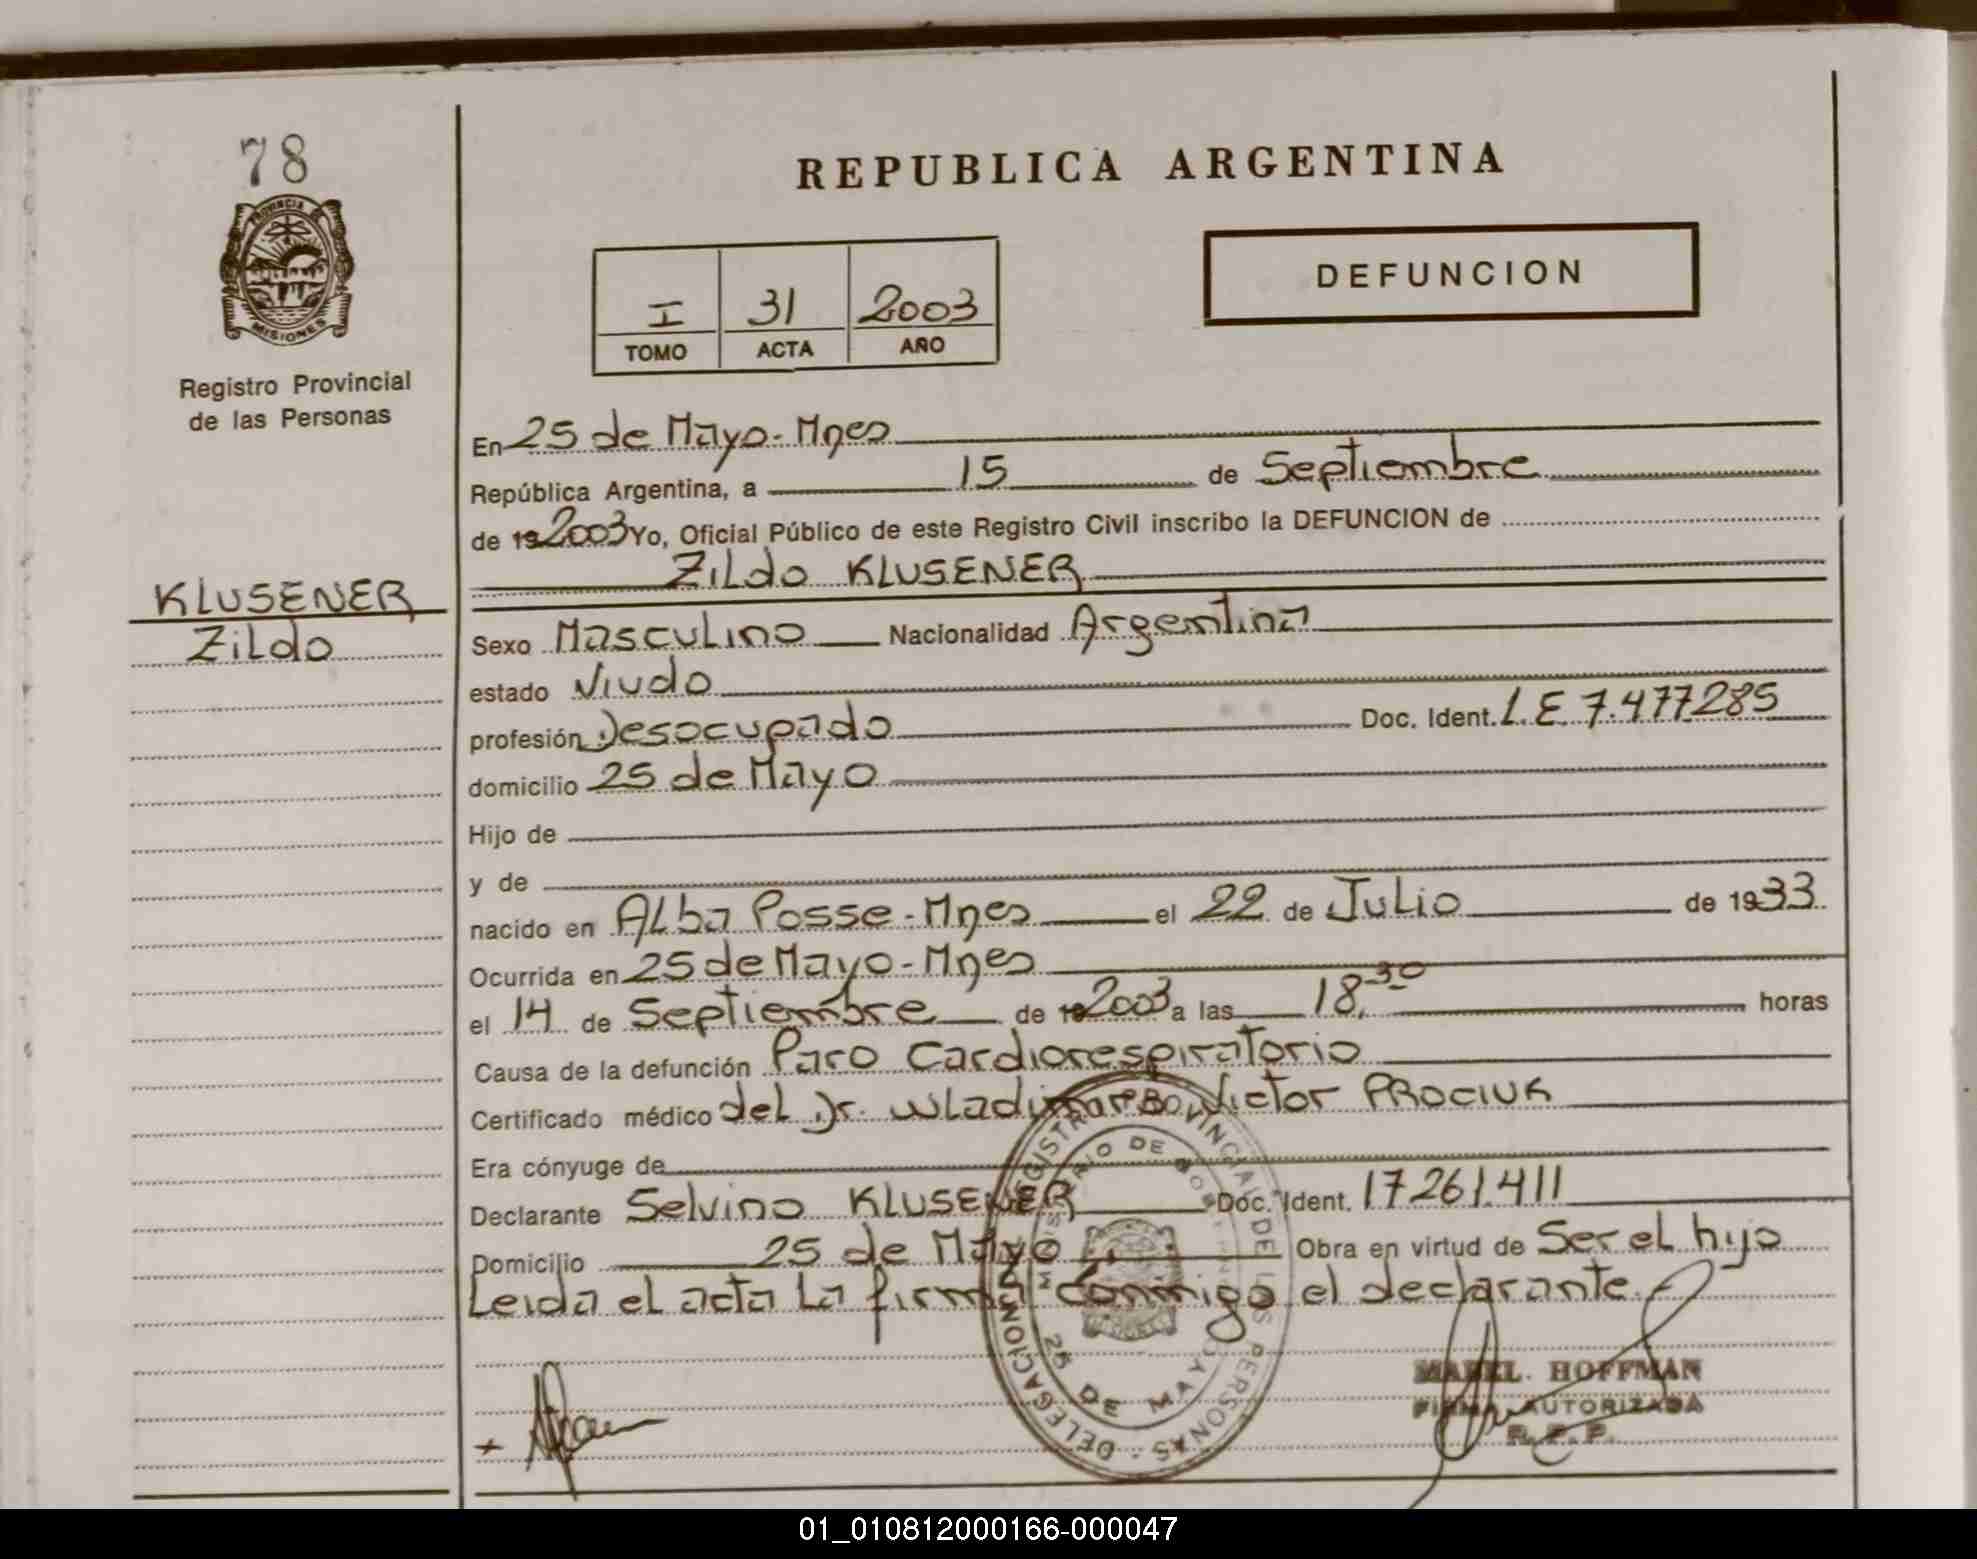 78
PROVINCIA DE
MISIONES
Registro Provincial
de las Personas
KLUSENER
Zildo
REPUBLICA ARGENTINA
I 31 2003
TOMO ACTA AÑO
DEFUNCION
En 25 de Mayo - Mnes
República Argentina, a 15 de Septiembre
de 19 2003 Yo, Oficial Público de este Registro Civil inscribo la DEFUNCION de
Zildo KLUSENER
Sexo Masculino Nacionalidad Argentina
estado Viudo
profesión Desocupado Doc. Ident. L.E. 7.477285
domicilio 25 de Mayo
Hijo de
y de
nacido en Alba Posse - Mnes el 22 de Julio de 1933
Ocurrida en 25 de Mayo - Mnes
el 14 de Septiembre de 19 2003 a las 18,30 horas
Causa de la defunción Paro Cardiorespiratorio
Certificado médico del Dr. Wladimar Victor PROCIUK
Era cónyuge de
Declarante Selvino KLUSENER Doc. Ident. 17261.411
Domicilio 25 de Mayo Obra en virtud de Ser el hijo
Leida el acta la firma conmigo el declarante.
REGISTRO PROVINCIAL DE LAS PERSONAS - DELEGACION
25 DE MAYO
MABEL. HOFFMAN
FIRMA AUTORIZADA
R. P. P.
01_010812000166-000047